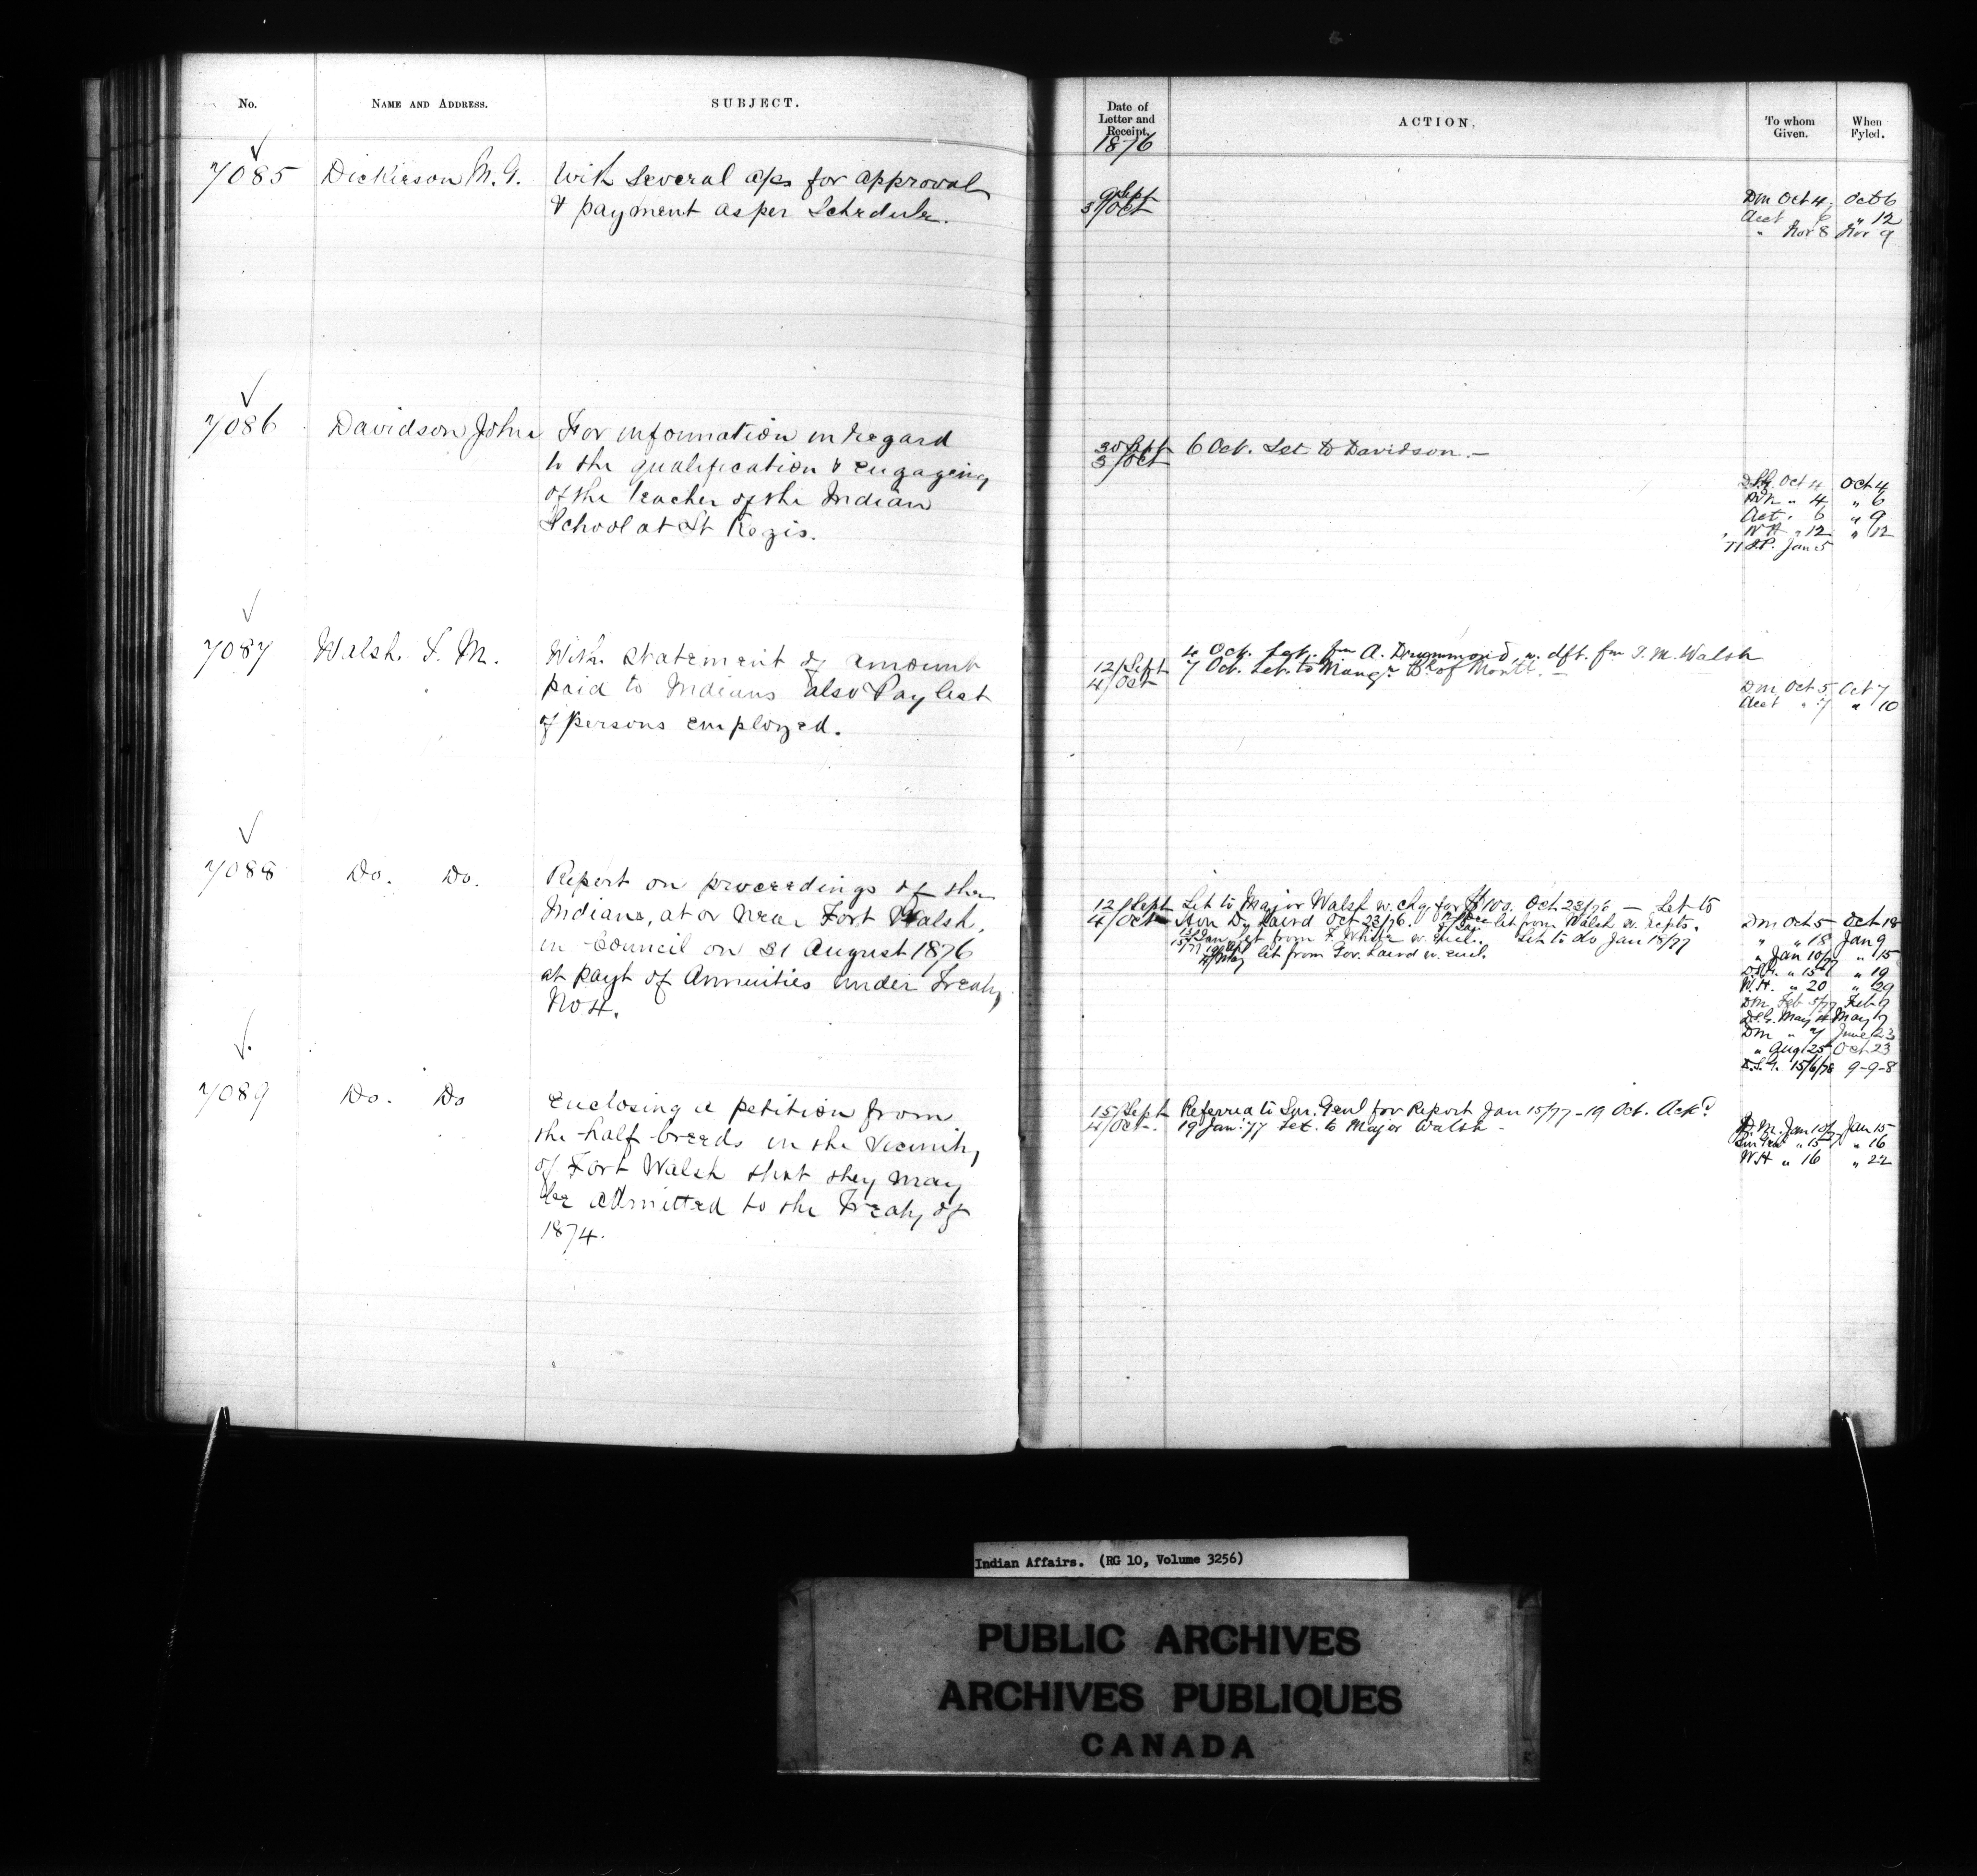 No.
NAME AND ADDRESS.
SUBJECT.
7085
Dickieson M. G.
With several a/cs for approval
& payment as per Schedule.
7086
Davidson John
For information in regard
to the qualification & engaging
of the teacher of the Indian
School at St Regis.
7087
Walsh. J. M.
With statement of amount
paid to Indians also Pay list
of persons employed.
7088
Do. Do.
Report on proceedings of the
Indians, at or near Fort Walsh,
in Council on 31 August 1876
at payt of Annuities under Treaty
No 4.
7089
Do. Do
Enclosing a petition from
the half-breeds in the vicinity
of Fort Walsh that they may
be admitted to the Treaty of
1874.
Date of
Letter and
Receipt.
1876
ACTION,
To whom
Given.
When
Fyled.
9 Sept
3/Oct
Dm Oct 4 Oct 6
Acct " 6 " 12
" Nov 8 Nov 9
30 Sept
3/Oct
6 Oct. Let to Davidson.—
Oct 4 Oct 4
" 4 " 6
Act. " 6 " 9
WH " 12 " 12
J.P. Jan 5
12/Sept
4/Oct
4 Oct. Let. fm A. Drummond, w. dft. fm J. M. Walsh
7 Oct. Let. to Mangr. Bk of Montl. —
Dm Oct 5 Oct 7
Acct " 7 " 10
12/Sept
4/Oct
Let to Major Walsh w. chq for $100. Oct 23/76 — Let to
Hon D. Laird Oct 23/76. let from Walsh w. rcpts.
let from F. White w. encl. Let to do Jan 18/77
let from Gov. Laird w. encl.
Dm Oct 5 Oct 18
" " 18 Jan 9
" Jan 10/77 " 15
D.S.G. " 15 " 19
W.H. " 20 " 29
Dm Feb 5/77 Feb 9
D.S.G. May 4 May 7
Dm " 7 June 23
" Aug 25 Oct 23
D.S.G. 15/6/78 9-9-8
15/Sept
4/Oct —.
Referred to Sur. Genl for Report Jan 15/77 - 19 Oct. Ackd
19 Jan: 77 Let. to Major Walsh -
D.M. Jan 10/77 Jan 15
Sur Genl " 15 " 16
WH " 16 " 22
Indian Affairs. (RG 10, Volume 3256)
PUBLIC ARCHIVES
ARCHIVES PUBLIQUES
CANADA